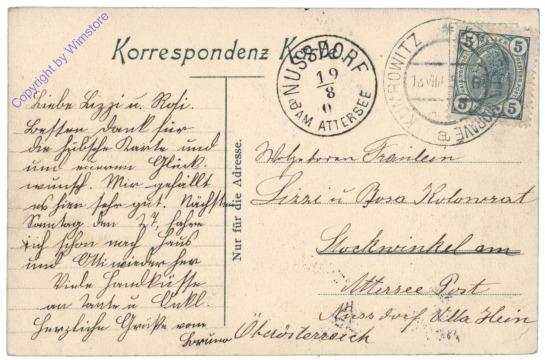 Copyright by Wimstore
Korrespondenz Karte
NUSSDORF
19
8
0
AM ATTERSEE
KUMROWITZ
5 5
5 5
Nur für die Adresse.
Liebe Lizzi u. Rosi.
Besten Dank für
die hübsche Karte und
und eueren Glück-
wunsch. Mir gefällt
es hier sehr gut. Nächsten
Samstag den 27, fahre
ich schon nach Haus
und Otti wieder her
Viele Handküsse
an Tante u. Onkl.
Herzliche Grüße vom
Bruno
Wohlgeboren Fräulein
Lizzi u Rosa Kolowrat
Stockwinkel am
Attersee Post
Nussdorf Villa Hein
Oberösterreich